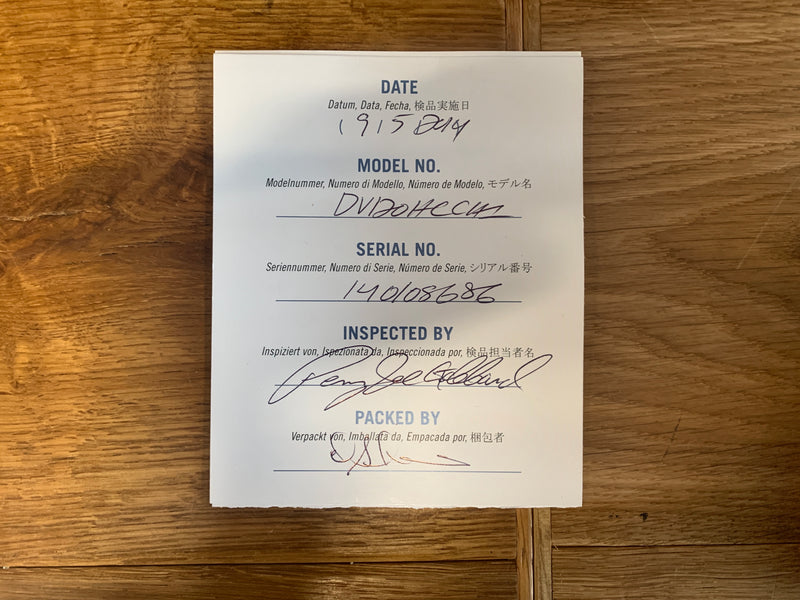 DATE
Datum, Data, Fecha, 検品実施日
MODEL NO.
Modelnummer, Numero di Modello, Número de Modelo, モデル名
DV20HCCH1
SERIAL NO.
Seriennummer, Numero di Serie, Número de Serie, シリアル番号
140108686
INSPECTED BY
Inspiziert von, Ispezionata da, Inspeccionada por, 検品担当者名
PACKED BY
Verpackt von, Imballata da, Empacada por, 梱包者